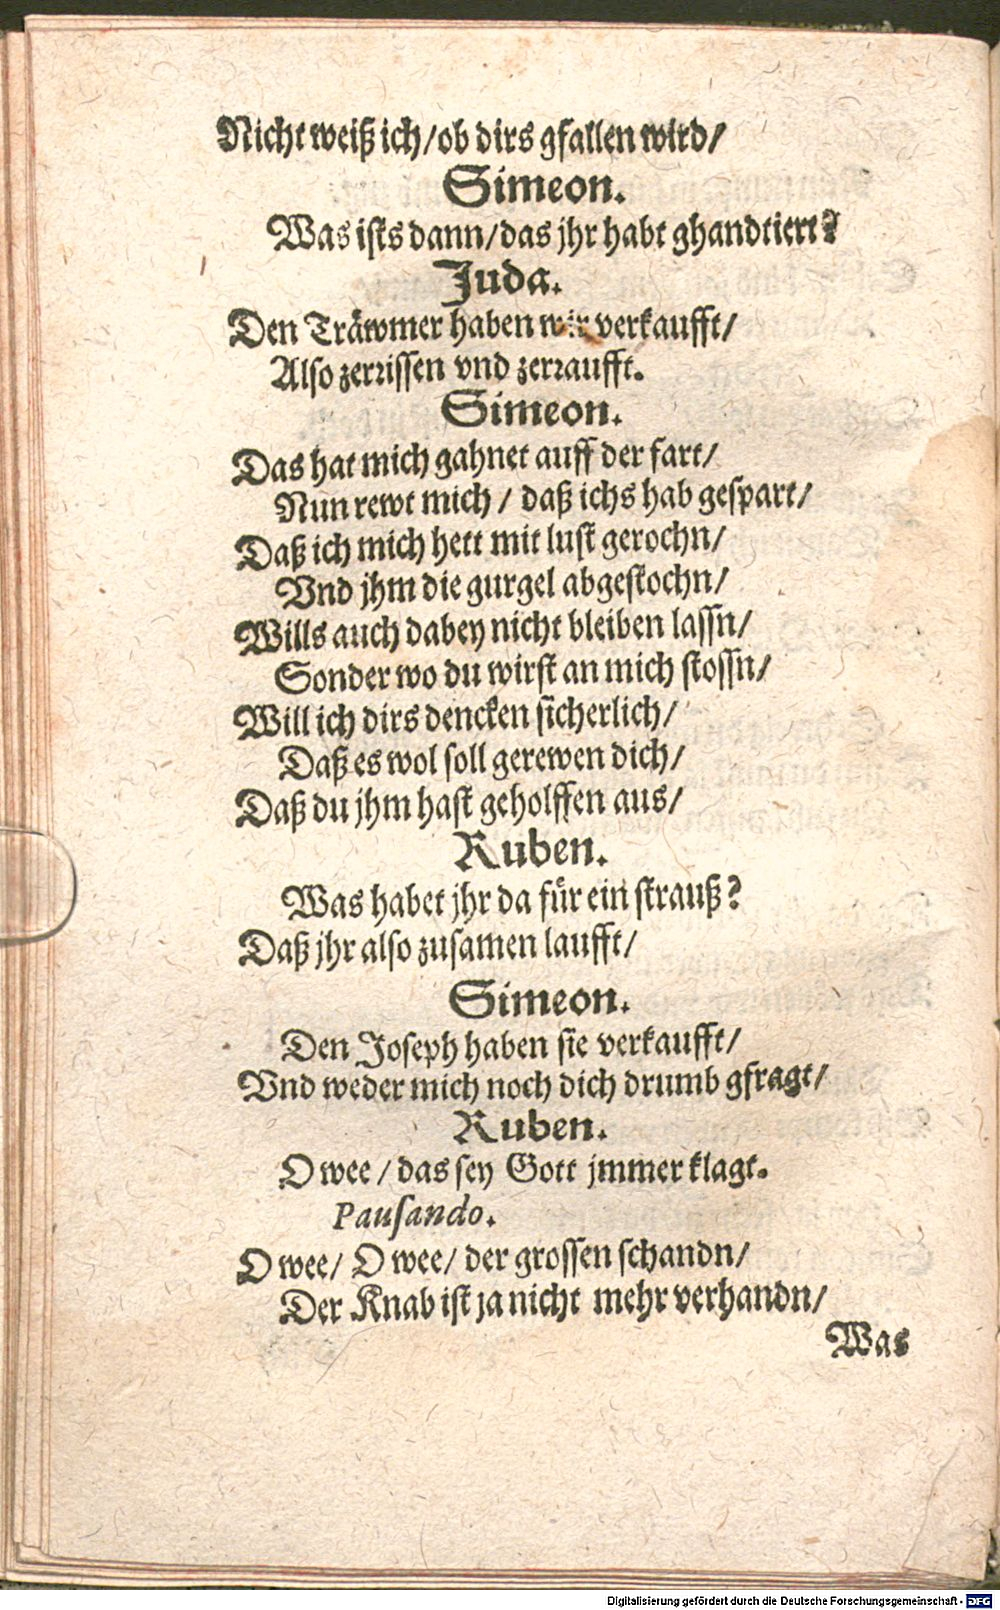 Nicht weiß ich/ob dirs gfallen wird/
Simeon.
Was ists dann/das jhr habt ghandtiert?
Juda.
Den Träwmer haben wir verkaufft/
Also zerrissen vnd zerraufft.
Simeon.
Das hat mich gahnet auff der fart/
Nun rewt mich / daß ichs hab gespart/
Daß ich mich hett mit lust gerochn/
Vnd jhm die gurgel abgestochn/
Wills auch dabey nicht bleiben lassn/
Sonder wo du wirst an mich stossn/
Will ich dirs dencken sicherlich/
Daß es wol soll gerewen dich/
Daß du jhm hast geholffen aus/
Ruben.
Was habet jhr da für ein strauß?
Daß jhr also zusamen laufft/
Simeon.
Den Joseph haben sie verkaufft/
Vnd weder mich noch dich drumb gfragt/
Ruben.
O wee / das sey Gott jmmer klagt.
Pausando.
O wee/ O wee/ der grossen schandn/
Der Knab ist ja nicht mehr verhandn/
Was
Digitalisierung gefördert durch die Deutsche Forschungsgemeinschaft - DFG